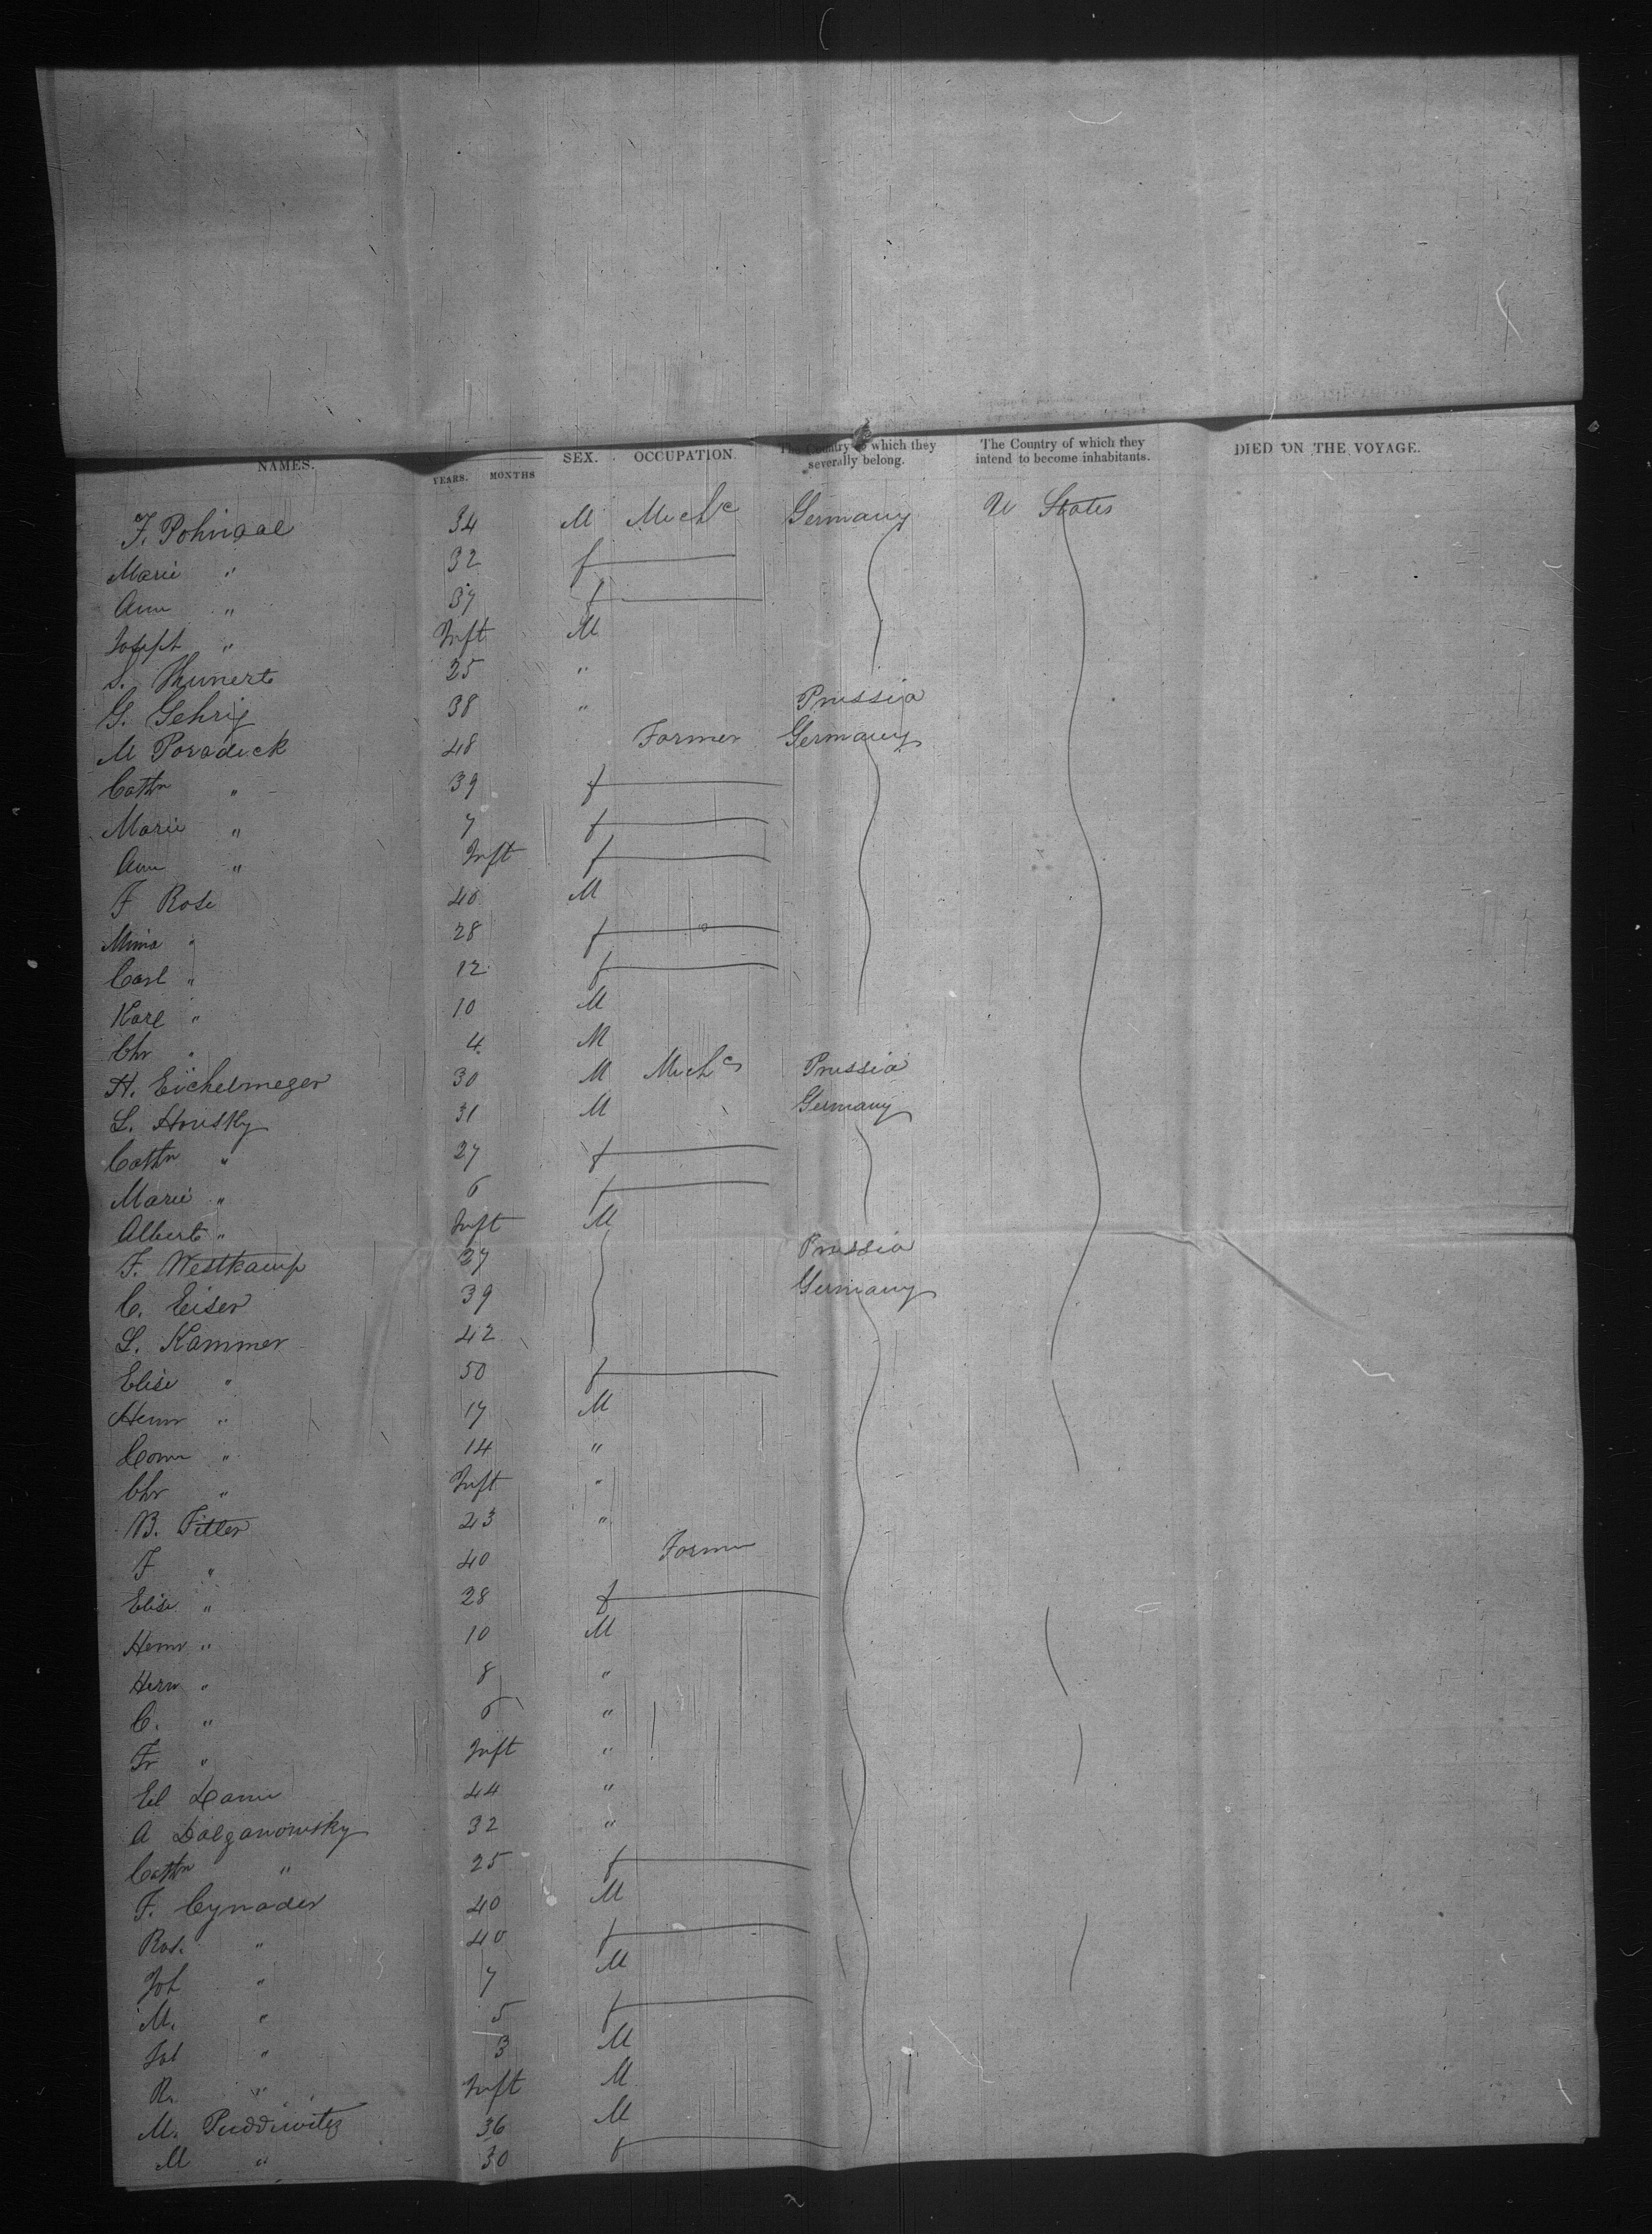 NAMES. YEARS. MONTHS SEX. OCCUPATION. The Country to which they severally belong. The Country of which they intend to become inhabitants. DIED ON THE VOYAGE.
F. Pohnaal 34 M Mechc Germany U States
Marie " 32 f
Ann " 37 f
Joseph " Inft M
S. Thunert 25 "
G. Gehrig 38 " Prussia
M Poradick 48 Farmer Germany
Cathn " 39 f
Marie " 7 f
Ann " Inft f
F Rose 40 M
Mina " 28 f
Carl " 12 f
Karl " 10 M
Chr " 4 M
H. Eickelmeger 30 M Mechcs Prussia
L. Housky 31 M Germany
Cathn " 27 f
Marie " 6 f
Albert " Inft M
F. Westkamp 27 Prussia
C. Eiser 39 Germany
L. Kammer 42
Elise " 50 f
Henr " 17 M
" 14 "
Chr " Inft "
B. Fitter 23 "
F " 40 Farmer
Elise " 28 f
Henr " 10 M
Herm " 8 "
C. " 6 "
Fr " Inft "
44 "
A Dalganowsky 32 "
Cathn " 25 f
F. Cynader 40 M
Ros. " 40 f
Joh " 7 M
M. " 5 f
" 3 M
R. " Inft M
M. Puddiwitz 36 M
M " 30 f